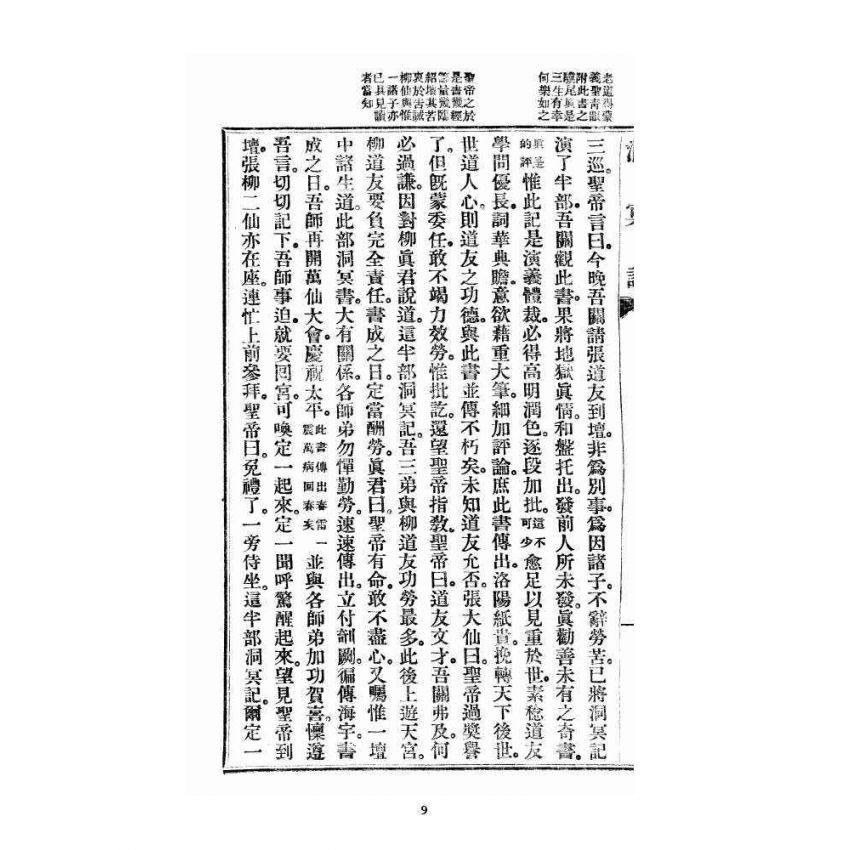 老道得蒙
義聖青眼
附此書之
驥尾眞是
三生有幸
何樂如之
聖帝之於
是書幾經
諭幾臨
紹壇其若
衷於告誡
柳仙與惟
一諸子亦
已具見讀
者當知
洞冥記
三巡聖帝言曰今晚吾關請張道友到壇非爲別事爲因諸子不辭勞苦已將洞冥記
演了半部吾關觀此書果將地獄眞情和盤托出發前人所未發眞勸善未有之奇書
眞是的評惟此記是演義體裁必得高明潤色逐段加批這不可少愈足以見重於世素稔道友
學問優長詞華典贍意欲藉重大筆細加評論庶此書傳出洛陽紙貴挽轉天下後世
世道人心則道友之功德與此書並傳不朽矣未知道友允否張大仙曰聖帝過奬譽
了但旣蒙委任敢不竭力效勞惟批訖還望聖帝指敎聖帝曰道友文才吾關弗及何
必過謙因對柳眞君說道這半部洞冥記吾三弟與柳道友功勞最多此後上遊天宮
柳道友要負完全責任書成之日定當酬勞眞君曰聖帝有命敢不盡心又囑惟一壇
中諸生道此部洞冥書大有關係各師弟勿憚勤勞速速傳出立付剞劂徧傳海宇書
成之日吾師再開萬仙大會慶祝太平此書傳出春雷一震萬病回春矣並與各師弟加功賀喜懍遵
吾言切切記下吾師事迫就要回宮可喚定一起來定一聞呼驚醒起來望見聖帝到
壇張柳二仙亦在座連忙上前參拜聖帝曰免禮了一旁侍坐這半部洞冥記爾定一
9